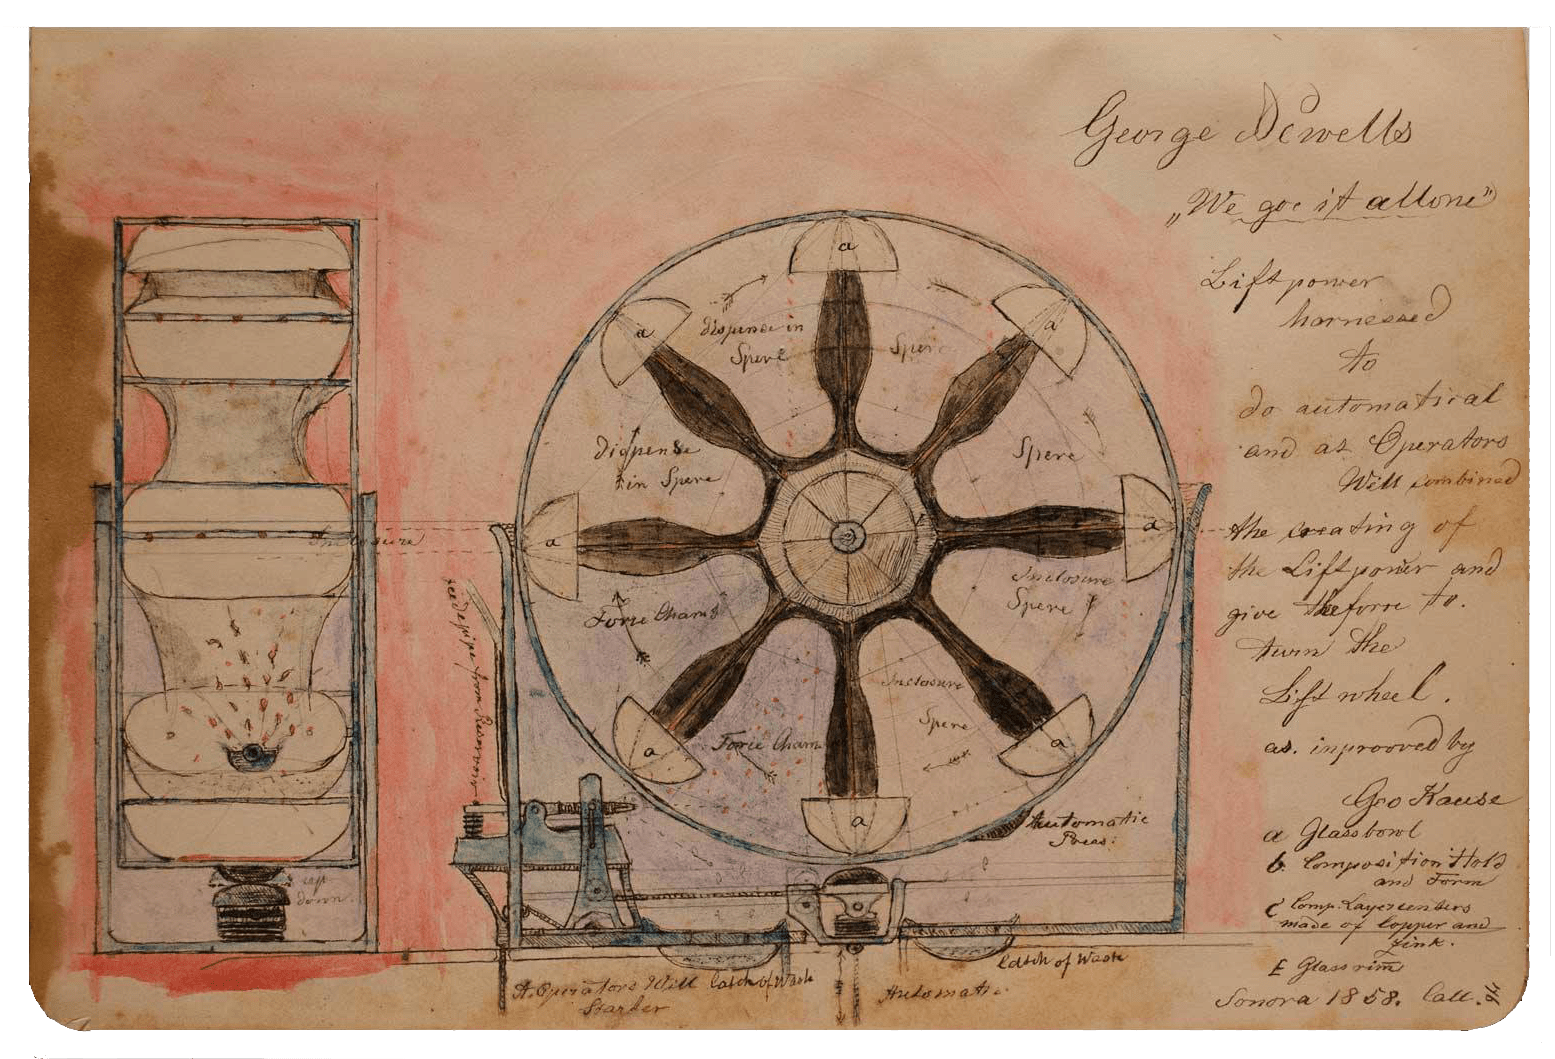 George Dewells
„We goe it allone"
Lift power
harnessed
to
do automatical
and at Operators
Will combined
the creating of
the Lift power and
give the force to.
turn the
Lift wheel.
as. inprooved by
Gro Kause
a Glass bowl
b Composition Hold
and Form
C Comp. Layer centers
made of Copper and
Zink.
E Glass rim
Sonora 1858. Call.
a
a
a
a
a
a
a
a
dispense in
Spere
Spere
Dispense
in Spere
Spere
Inclosure
Spere
Force Cham
Inclosure
Spere
Force Cham
from
Automatic
cap
down.
At Operators Will
Starter
Catch of Wash
Automatic
Catch of Wash